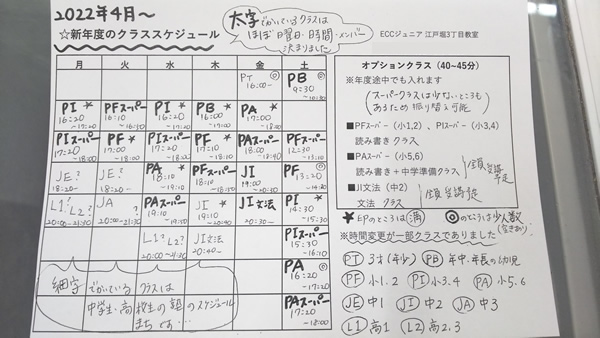 2022年4月～
☆新年度のクラススケジュール
太字でかいているクラスは
ほぼ曜日・時間・メンバー
決まりました
ECCジュニア 江戸堀3丁目教室
月 火 水 木 金 土
PT ◎
16:00～
PB ◎
9:30
～10:30
PI ★
16:20
～17:20
PFスーパー
16:10
～16:50
PI ★
16:20
～17:20
PB ★
16:00
～17:00
PA ★
17:00
～18:00
PIスーパー
17:20
～18:00
PF ★
17:00
～18:00
PIスーパー
17:20
～18:00
PF ★
17:10
～18:10
PAスーパー
18:00
～18:40
PFスーパー
12:30
～13:10
JE?
18:20～
JE?
18:20～
PA ★
18:10
～19:10
PFスーパー
18:10
JI
PF ◎
13:20
～14:20
L1?
20:00～21:30
JA?
20:00～21:30
PAスーパー
19:10
JI ★
JI文法
20:30～
PI ★
14:30
～15:30
L1? L2?
20:00～21:30
JI文法
20:40～
PIスーパー
15:30
～16:10
PA ◎
16:20
～17:20
PAスーパー
17:20
～18:00
細字でかいているクラスは
中学生・高校生の塾のスケジュール
まちです…
オプションクラス（40～45分）
※年度途中でも入れます
（スーパークラスは少ないところも
あるため振り替え可能
■PFスーパー（小1,2）、PIスーパー（小3,4）
読み書きクラス
■PAスーパー（小5,6）
読み書き＋中学準備クラス
■JI文法（中2）
文法クラス
★印のところは満 ◎のところは少人数
（空きあり）
※時間変更が一部クラスでありました
PT 3才（年少） PB 年中・年長の幼児
PF 小1.2 PI 小3.4 PA 小5.6
JE 中1 JI 中2 JA 中3
L1 高1 L2 高2.3